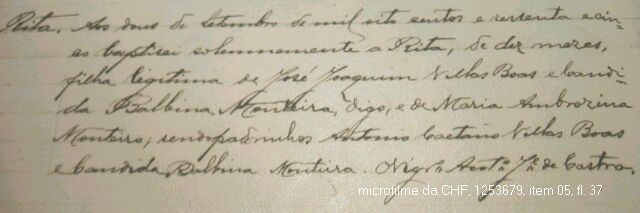 Rita. Aos dous de Setembro de mil oito centos e sessenta e cin-
co baptisei solemnemente a Rita, de dez mezes,
filha legitima de José Joaquim Villas Boas e Candi-
da Balbina Monteira, digo, e de Maria Ambrozina
Monteiro; sendo padrinhos Antonio Caetano Villas Boas
e Candida Balbina Monteira. O Vigrº Antº Jª de Castro.
microfilme da CHF, 1253679, item 05, fl. 37